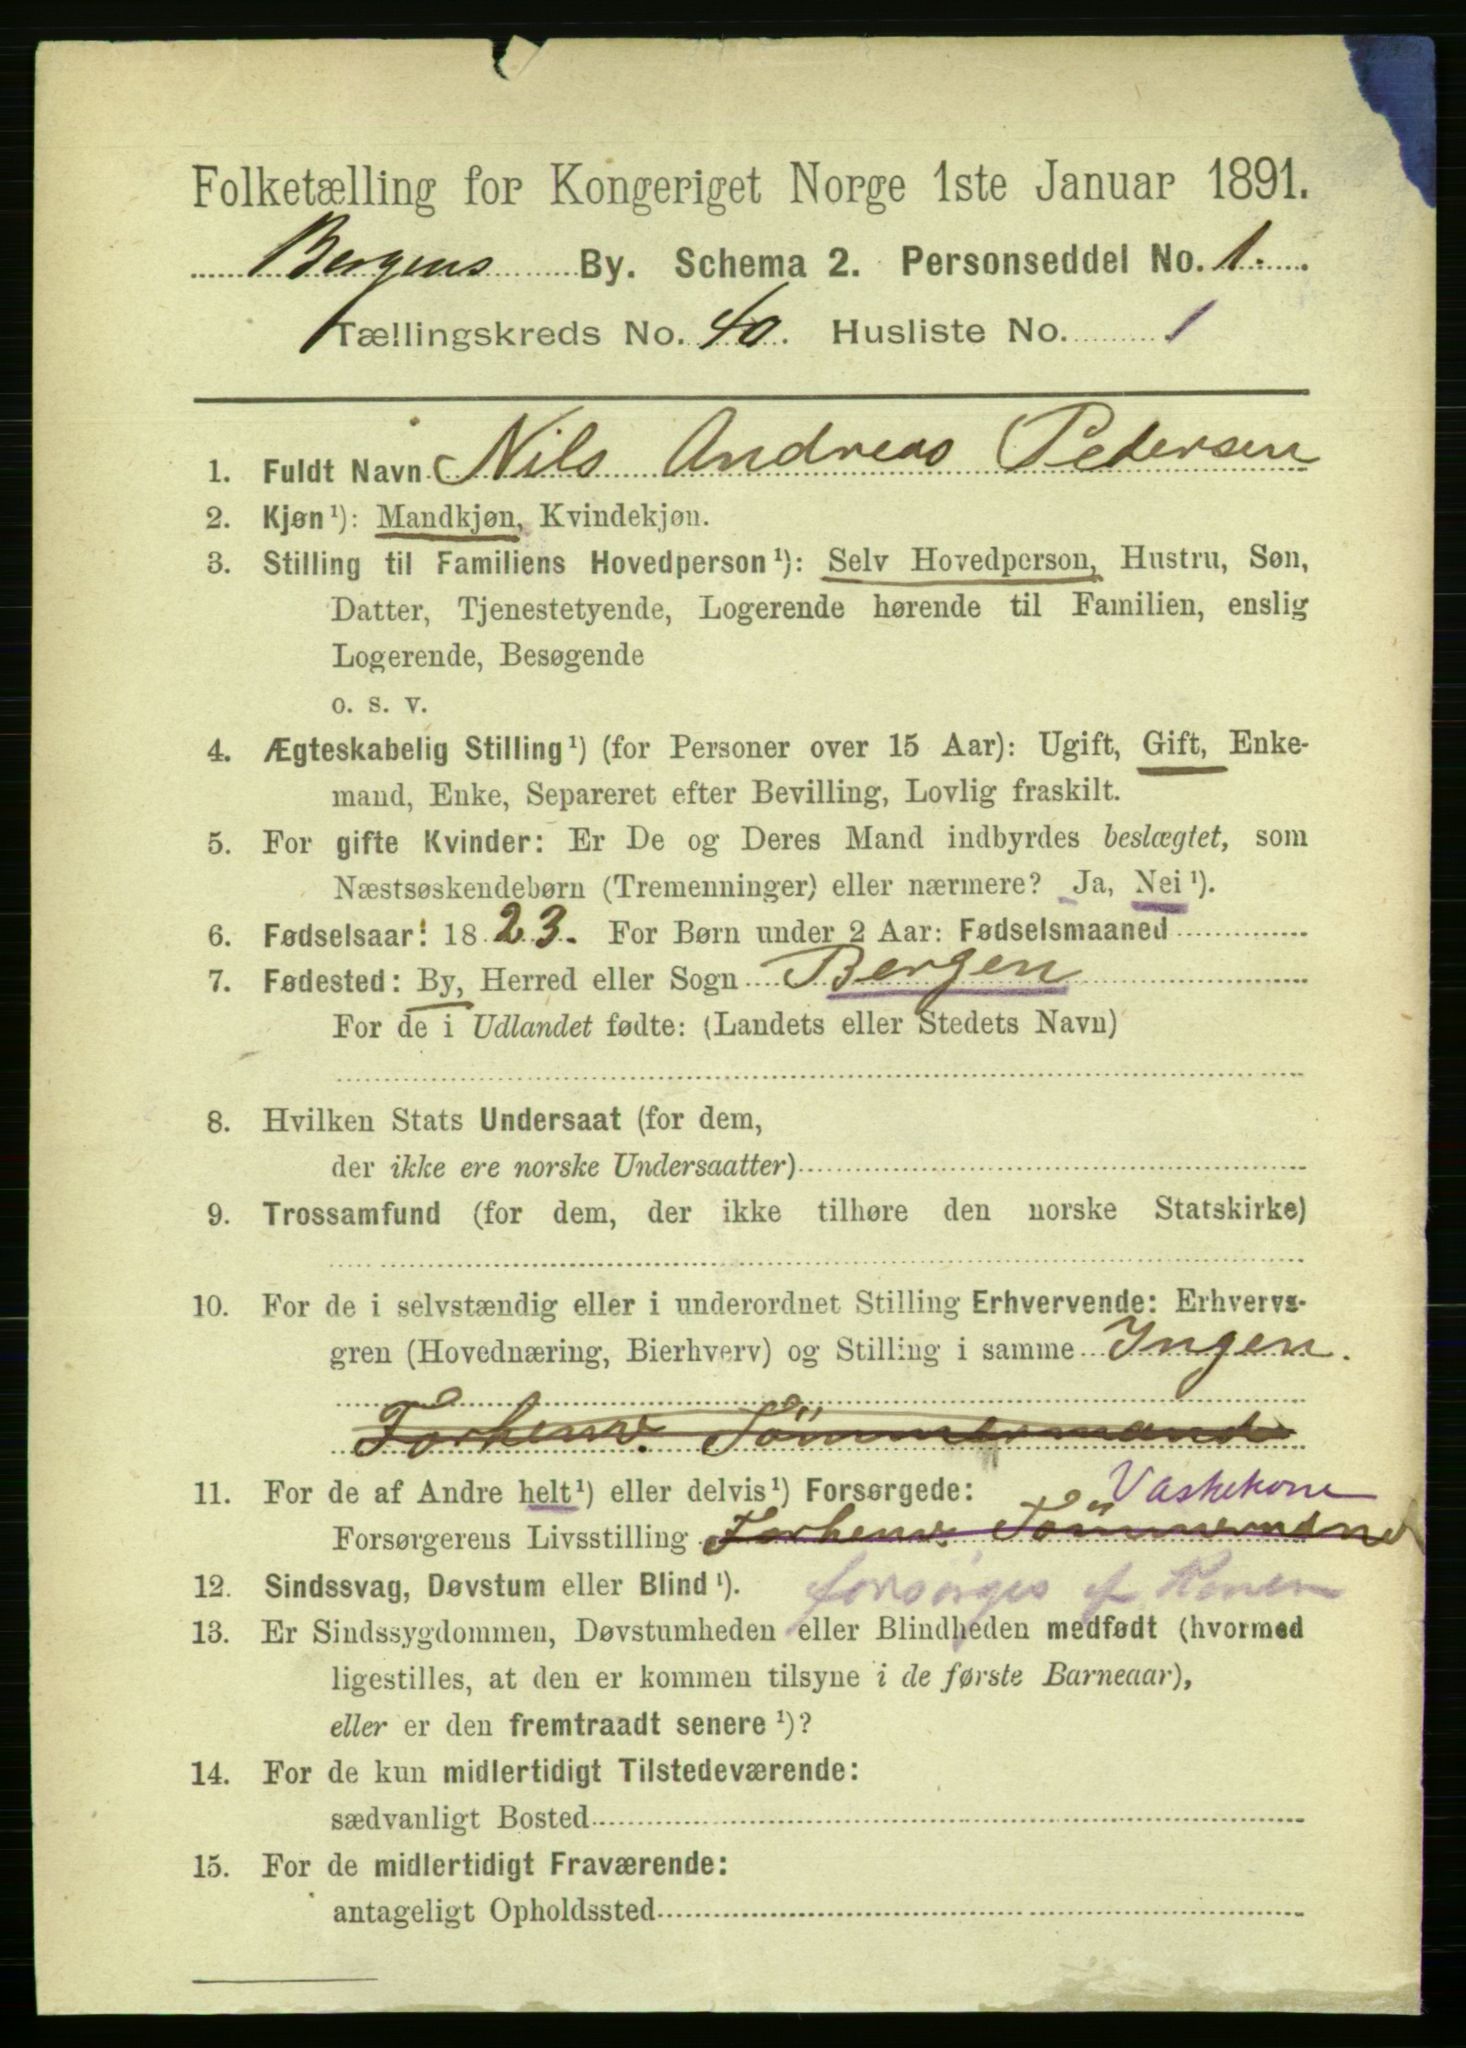 Folketælling for Kongeriget Norge 1ste Januar 1891.
Bergens By. Schema 2. Personseddel No. 1.
Tællingskreds No. 40. Husliste No. 1
1. Fuldt Navn Nils Andreas Pedersen
2. Kjøn¹): Mandkjøn, Kvindekjøn.
3. Stilling til Familiens Hovedperson¹): Selv Hovedperson, Hustru, Søn,
Datter, Tjenestetyende, Logerende hørende til Familien, enslig
Logerende, Besøgende
o. s. v.
4. Ægteskabelig Stilling¹) (for Personer over 15 Aar): Ugift, Gift, Enke-
mand, Enke, Separeret efter Bevilling, Lovlig fraskilt.
5. For gifte Kvinder: Er De og Deres Mand indbyrdes beslægtet, som
Næstsøskendebørn (Tremenninger) eller nærmere? Ja, Nei¹).
6. Fødselsaar: 1823. For Børn under 2 Aar: Fødselsmaaned
7. Fødested: By, Herred eller Sogn Bergen
For de i Udlandet fødte: (Landets eller Stedets Navn)
8. Hvilken Stats Undersaat (for dem,
der ikke ere norske Undersaatter)
9. Trossamfund (for dem, der ikke tilhøre den norske Statskirke)
10. For de i selvstændig eller i underordnet Stilling Erhvervende: Erhvervs-
gren (Hovednæring, Bierhverv) og Stilling i samme Ingen.
Forhenv. Tömmermand
11. For de af Andre helt¹) eller delvis¹) Forsørgede: Vaskekone
Forsørgerens Livsstilling Forhenv. Tömmermand
12. Sindssvag, Døvstum eller Blind¹). forsörges af Konen
13. Er Sindssygdommen, Døvstumheden eller Blindheden medfødt (hvormed
ligestilles, at den er kommen tilsyne i de første Barneaar),
eller er den fremtraadt senere¹)?
14. For de kun midlertidigt Tilstedeværende:
sædvanligt Bosted
15. For de midlertidigt Fraværende:
antageligt Opholdssted